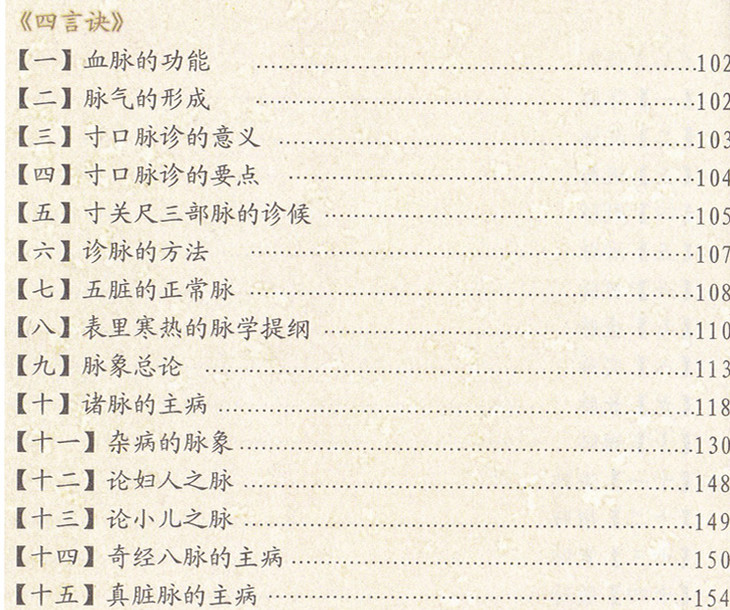 《四言诀》
【一】血脉的功能 ………………………………………102
【二】脉气的形成 ………………………………………102
【三】寸口脉诊的意义 …………………………………103
【四】寸口脉诊的要点 …………………………………104
【五】寸关尺三部脉的诊候 ……………………………105
【六】诊脉的方法 ………………………………………107
【七】五脏的正常脉 ……………………………………108
【八】表里寒热的脉学提纲 ……………………………110
【九】脉象总论 …………………………………………113
【十】诸脉的主病 ………………………………………118
【十一】杂病的脉象 ……………………………………130
【十二】论妇人之脉 ……………………………………148
【十三】论小儿之脉 ……………………………………149
【十四】奇经八脉的主病 ………………………………150
【十五】真脏脉的主病 …………………………………154